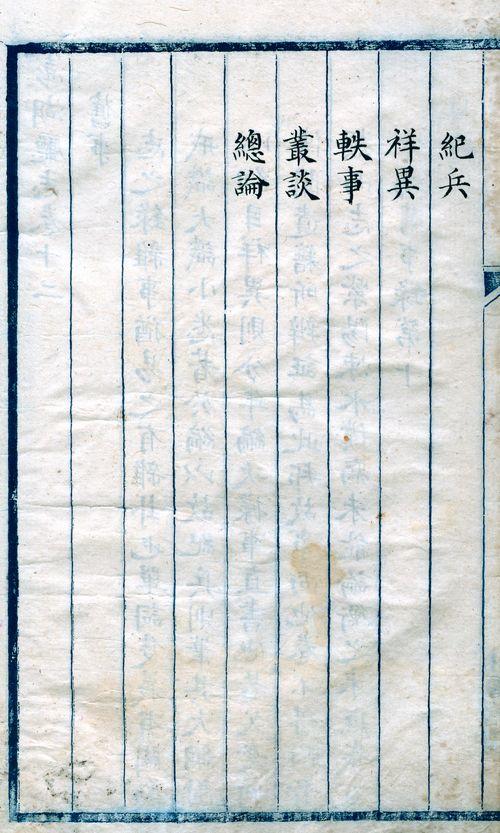 紀兵
祥異
軼事
叢談
總論